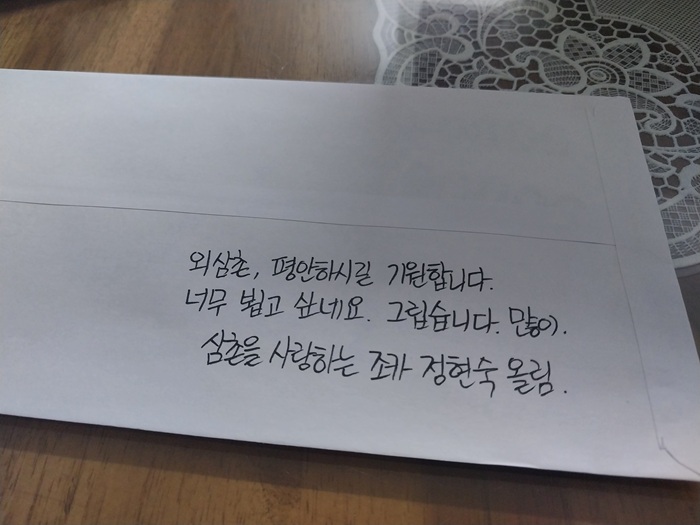 외삼촌, 평안하시길 기원합니다.
너무 뵙고 싶네요. 그립습니다. 많이.
삼촌을 사랑하는 조카 정현숙 올림.